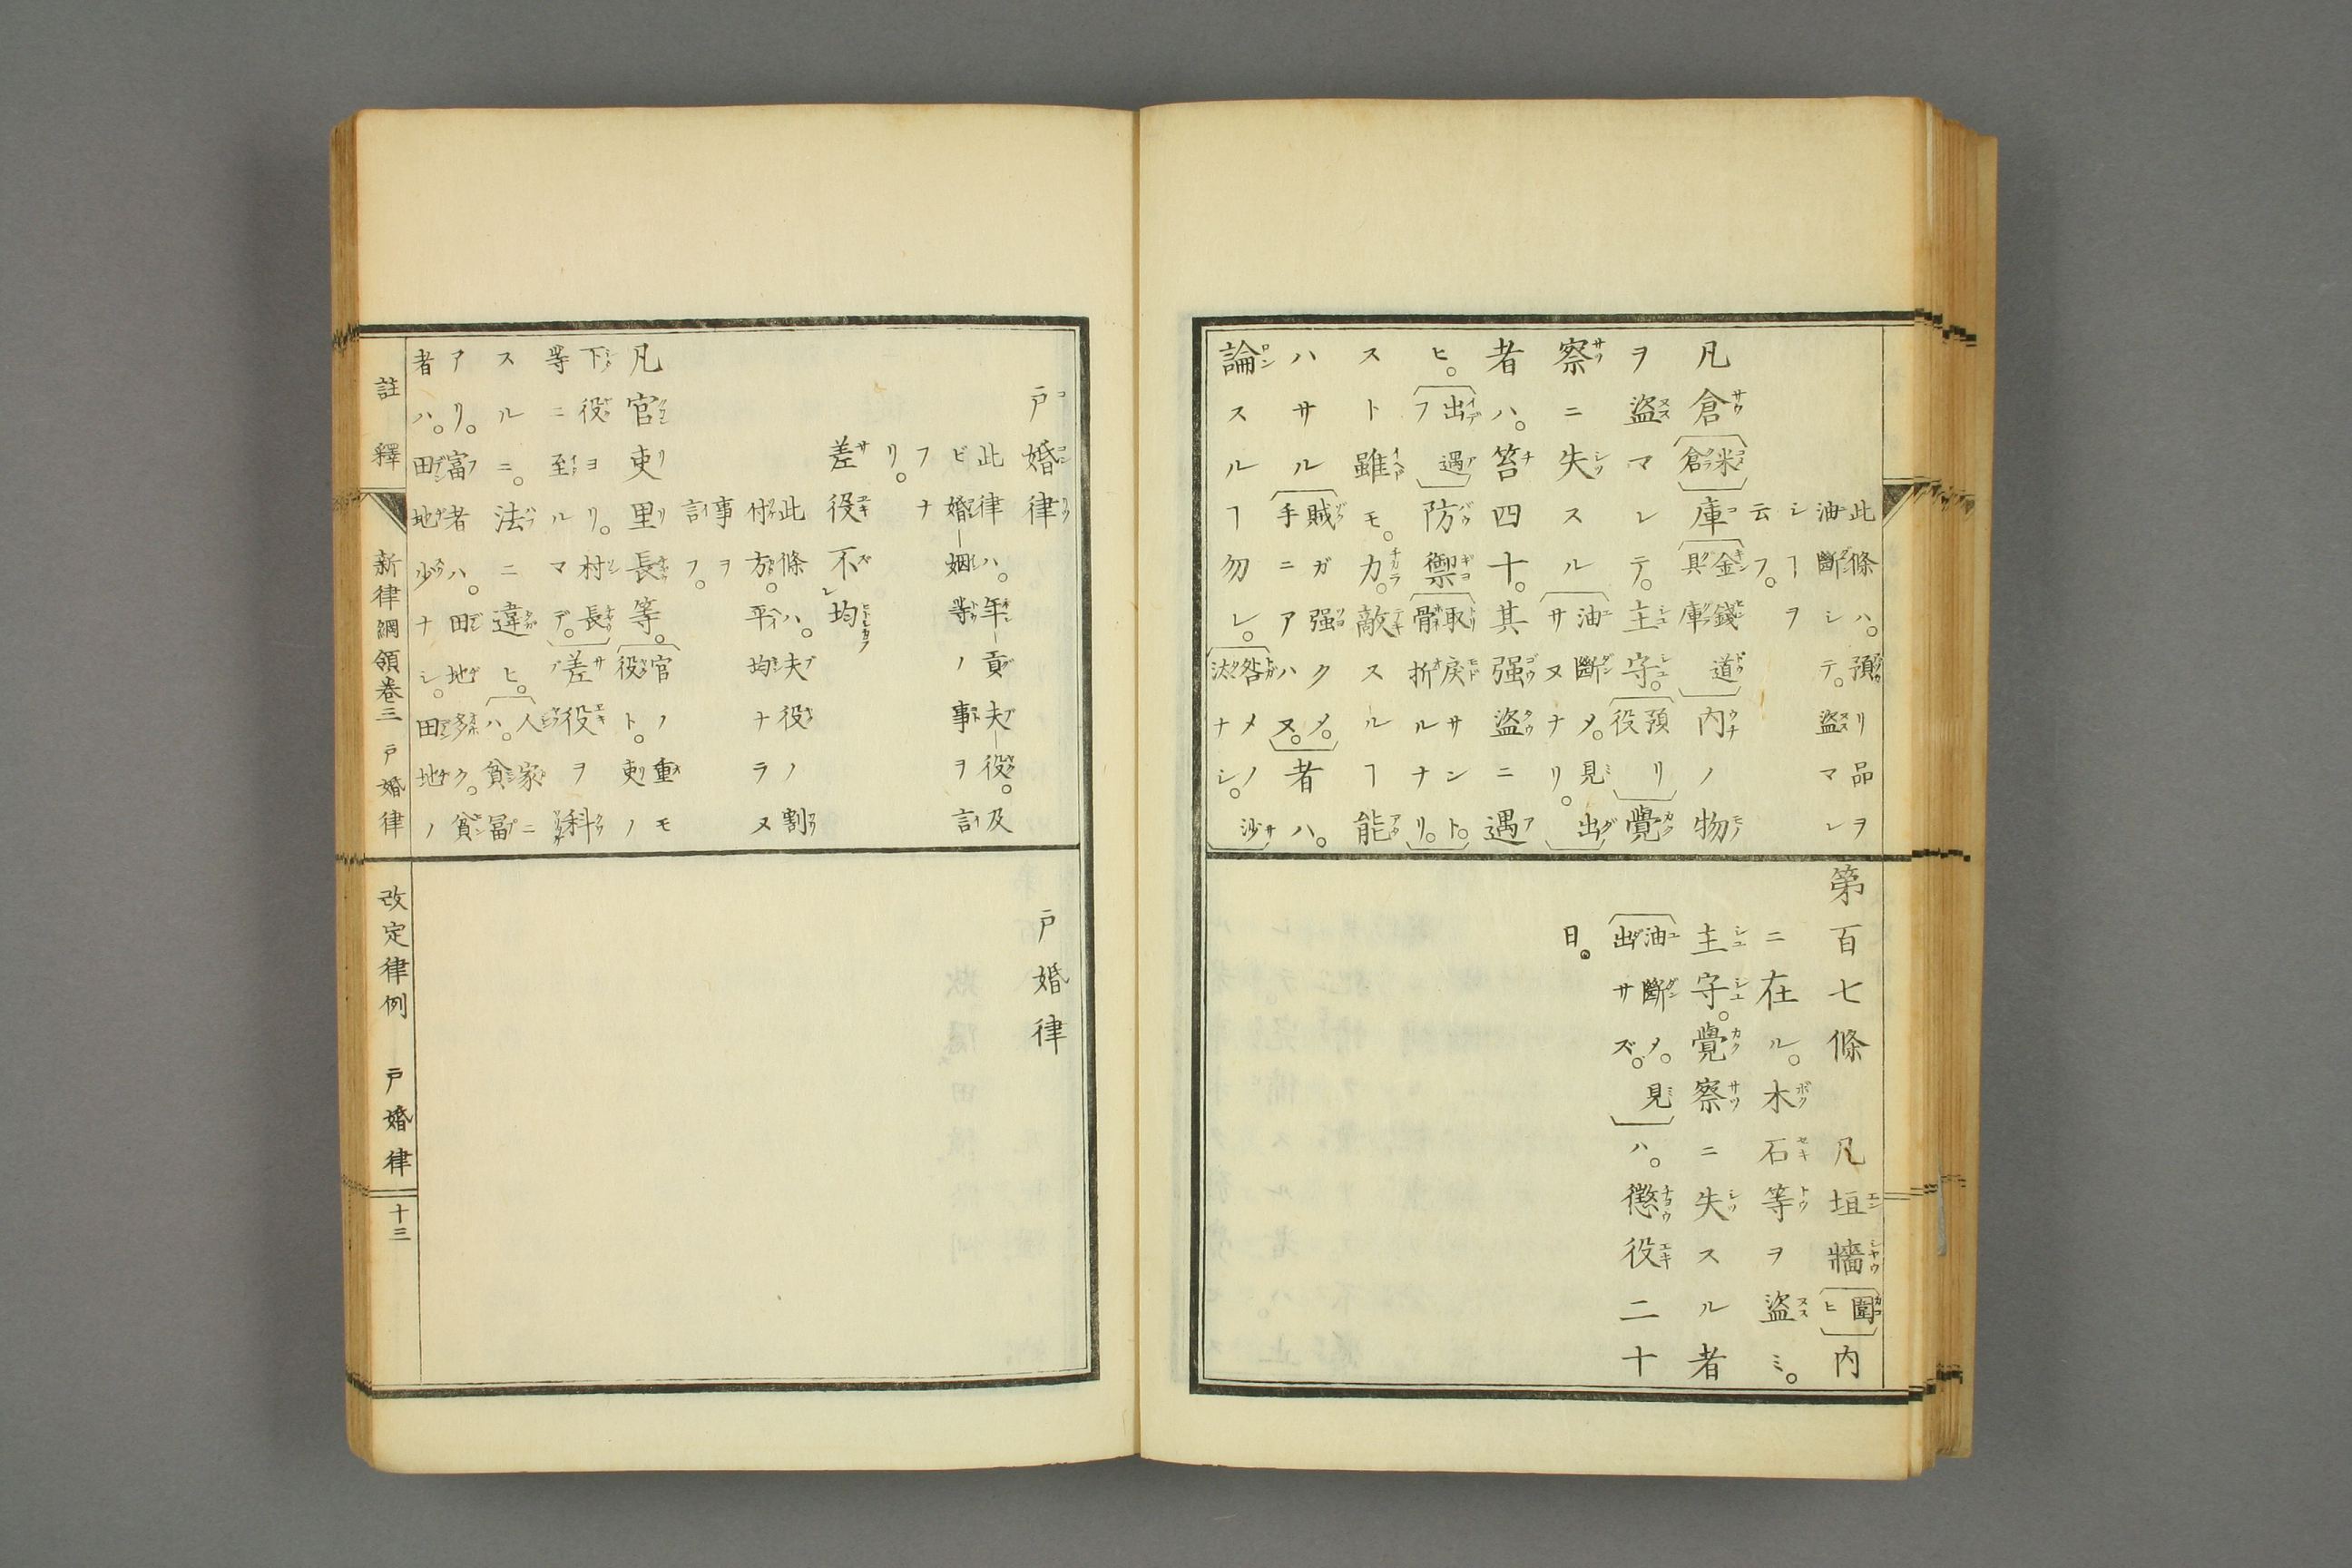 此條ハ。預リ品ヲ
油斷シテ。盜マレ
シヿヲ
云フ。
凡倉米倉庫金錢道具庫内ノ物
ヲ盜マレテ。主守。預リ役覺
察ニ失スル油斷メ。見出サヌナリ。
者ハ。笞四十。其强盜ニ遇
ヒ。出遇フ防禦取戾サント。骨折ルナリ。
スト雖モ。力。敵スルヿ能
ハサル賊ガ强クメ。手ニアハヌ。者ハ。
論スルヿ勿レ。咎メノ沙汰ナシ。
第百七條 凡垣牆圍ヒ内
ニ在ル。木石等ヲ盜ミ。
主守。覺察ニ失スル者
油斷メ。見出サズ。ハ。懲役二十
日。
戸婚律
此律ハ。年貢夫役。及
ビ婚姻等ノ事ヲ言
フナリ。
差役不レ均
此條ハ。夫役ノ割
付方。平均ナラヌ
事ヲ
言フ。
凡官吏里長等。官ノ重モ役ト。吏ノ
下役ヨリ。村長等ニ至ルマデ。差役ヲ科
スルニ。法ニ違ヒ。人家ニハ。貧富
アリ。富者ハ。田地多ク。貧
者ハ。田地少ナシ。田地ノ
戸婚律
註釋 新律綱領卷三 戸婚律 改定律例 戸婚律 十三